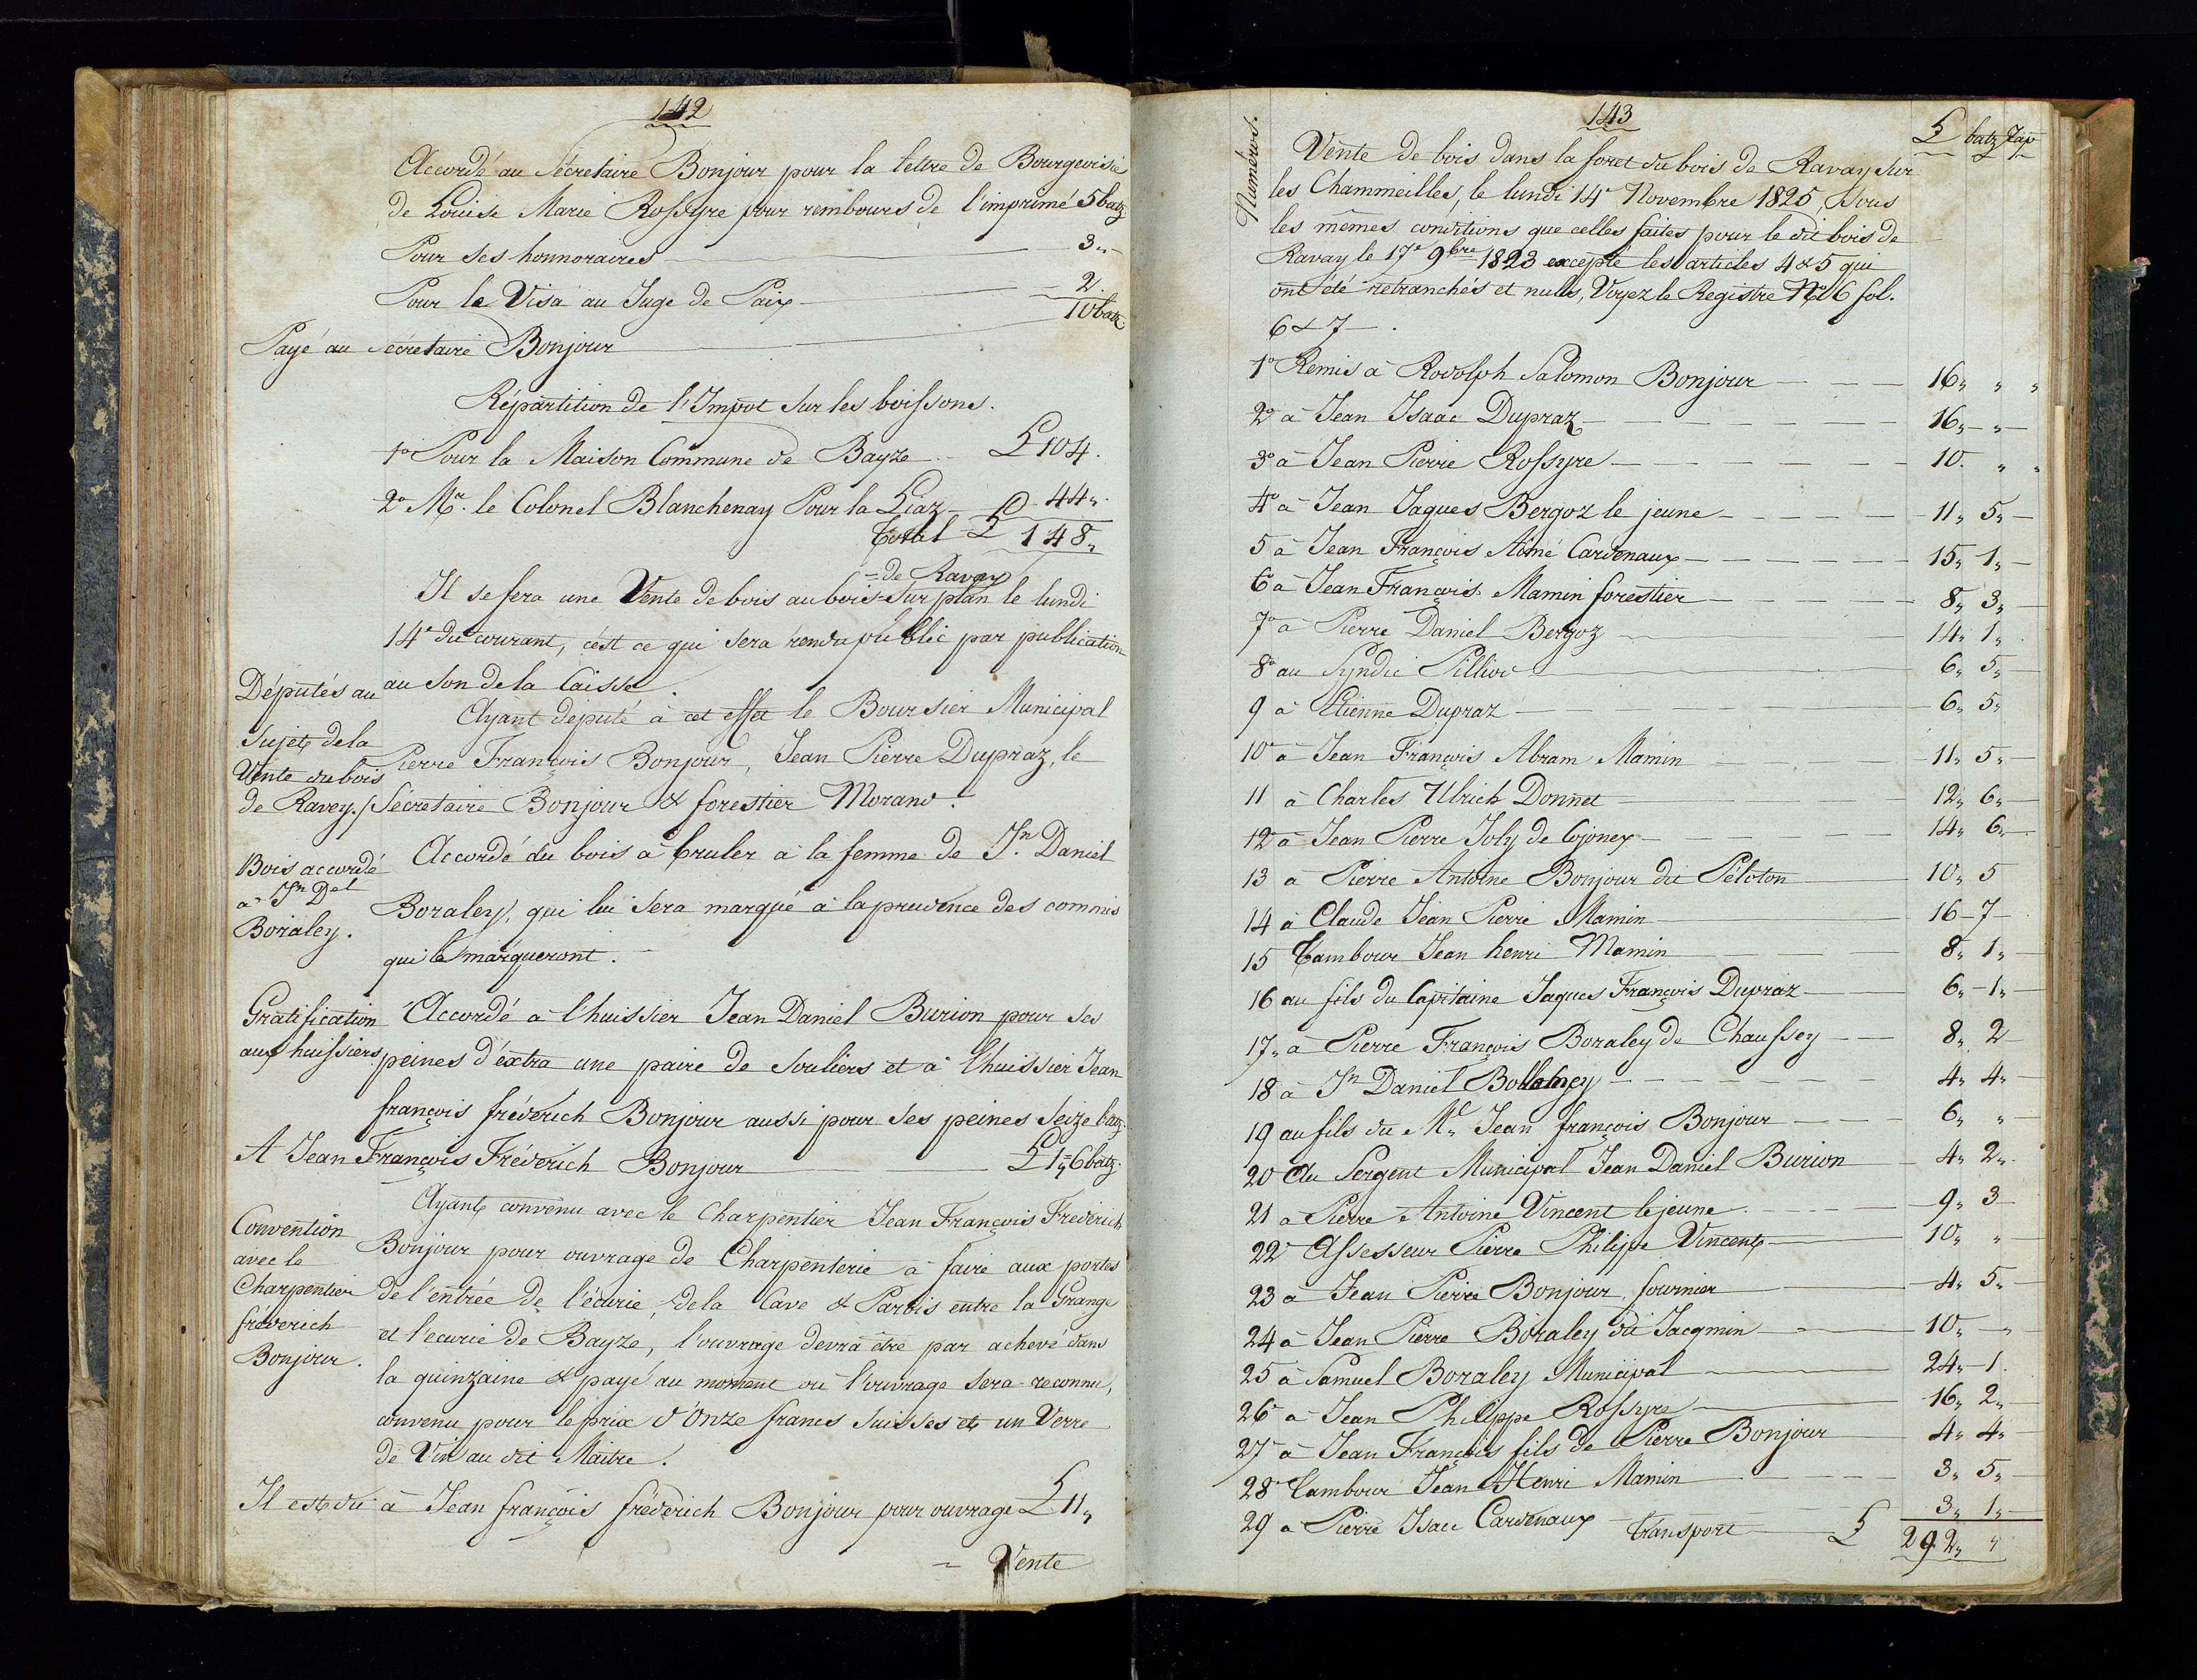 142
Accordé au Sécretaire Bonjour pour la lettre de Bourgeoisie
de Louise Marie Rossyre pour rembours de l'imprimé 5 batz
Pour ses honnoraires 3 "
Pour le Visa au Juge de Paix 2.
10 batz
Payé au Sécretaire Bonjour
Répartition de l'Impot sur les boissons.
1° Pour la Maison Commune de Bayze £ 104.
2° Mr. le Colonel Blanchenay Pour la Liaz 44 "
Total £ 148 "
= de Ravay
Il se fera une Vente de bois au bois = sur plan le lundi
14e du courant, c'est ce qui sera rendu public par publication
au son de la Caisse.
Députés au
Sujet de la
Vente du bois
de Ravey.
Ayant député à cet effet le Boursier Municipal
Pierre François Bonjour, Jean Pierre Dupraz, le
Sécretaire Bonjour & forestier Morand.
Bois accordé
à Jn Del
Boraley.
Accordé du bois à bruler à la femme de Jn. Daniel
Boraley, qui lui sera marqué à la prudence des commis
qui le marqueront.
Gratification
aux huissiers
Accordé à l'huissier Jean Daniel Burion pour ses
peines d'extra une paire de souliers et à l'huissier Jean
françois fréderich Bonjour aussi pour ses peines seize batz.
A Jean François Fréderich Bonjour £ 1 " 6 batz.
Convention
avec le
Charpentier
fréderich
Bonjour.
Ayant convenu avec le Charpentier Jean François Fréderich
Bonjour pour ouvrage de Charpenterie à faire aux portes
de l'entrée de l'écurie, de la Cave & Parois entre la Grange
et l'ecurie de Bayze, l'ouvrage devra être par achevé dans
la quinzaine & payé au moment où l'ouvrage sera reconnu,
convenu pour le prix d'Onze francs suisses et un Verre
de Vin au dit Maitre.
Il est dû à Jean françois fréderich Bonjour pour ouvrage £ 11 "
= Vente
143
Numéros.
£ batz rap
Vente de bois dans la foret du bois de Ravay sur
les Chammeilles, le lundi 14e Novembre 1825, sous
les mêmes conditions que celles faites pour le dit bois de
Ravay le 17e 9bre 1823 excepté les articles 4 & 5 qui
ont été retranchés et nuls, Voyez le Registre N° 16 fol.
6 & 7 .
1° Remis à Rodolph Salomon Bonjour 16 " " "
2° à Jean Isaac Dupraz 16 " "
3° à Jean Pierre Rossyre 10 " "
4° à Jean Jaques Bergoz le jeune 11 " 5 "
5 à Jean François Aimé Cardenaux 15 " 1 "
6° à Jean François Mamin forestier 8 " 3 "
7° à Pierre Daniel Bergoz 14 " 1 "
8° au Syndic Pilliod 6 " 5 "
9 à Etienne Dupraz 6 " 5 "
10° à Jean François Abram Mamin 11 " 5 "
11 à Charles Ulrich Donnet 12 " 6 "
12° à Jean Pierre Joly de Cojonex 14 " 6 "
13 à Pierre Antoine Bonjour dit Péloton 10 " 5
14 à Claude Jean Pierre Mamin 16 - 7
15 Tambour Jean henri Mamin 8 " 1 "
16 au fils du Capitaine Jaques François Dupraz 6 " 1 "
17 " à Pierre François Boraley de Chaussey 8 " 2
18 à Jn Daniel 4 " 4
19 au fils du Jean françois Bonjour 6 " "
20 Au Sergent Municipal Jean Daniel Burion 4 " 2 "
21 à Pierre Antoine Vincent le jeune 9 " 3
22 Assesseur Pierre Philippe Vincent 10 " "
23 à Jean Pierre Bonjour, fournier 4 " 5 "
24 à Jean Pierre Boraley dit Jacqmin 10 " "
25 à Samuel Boraley Municipal 24 " 1
26 à Jean Philippe Rossyre 16 " 2 "
27 à Jean François fils de Pierre Bonjour 4 " 4
28 Tambour Jean Henri Mamin 3 " 5 "
29 à Pierre Isaac Cardenaux 3 " 1 "
transport £ 292 " "